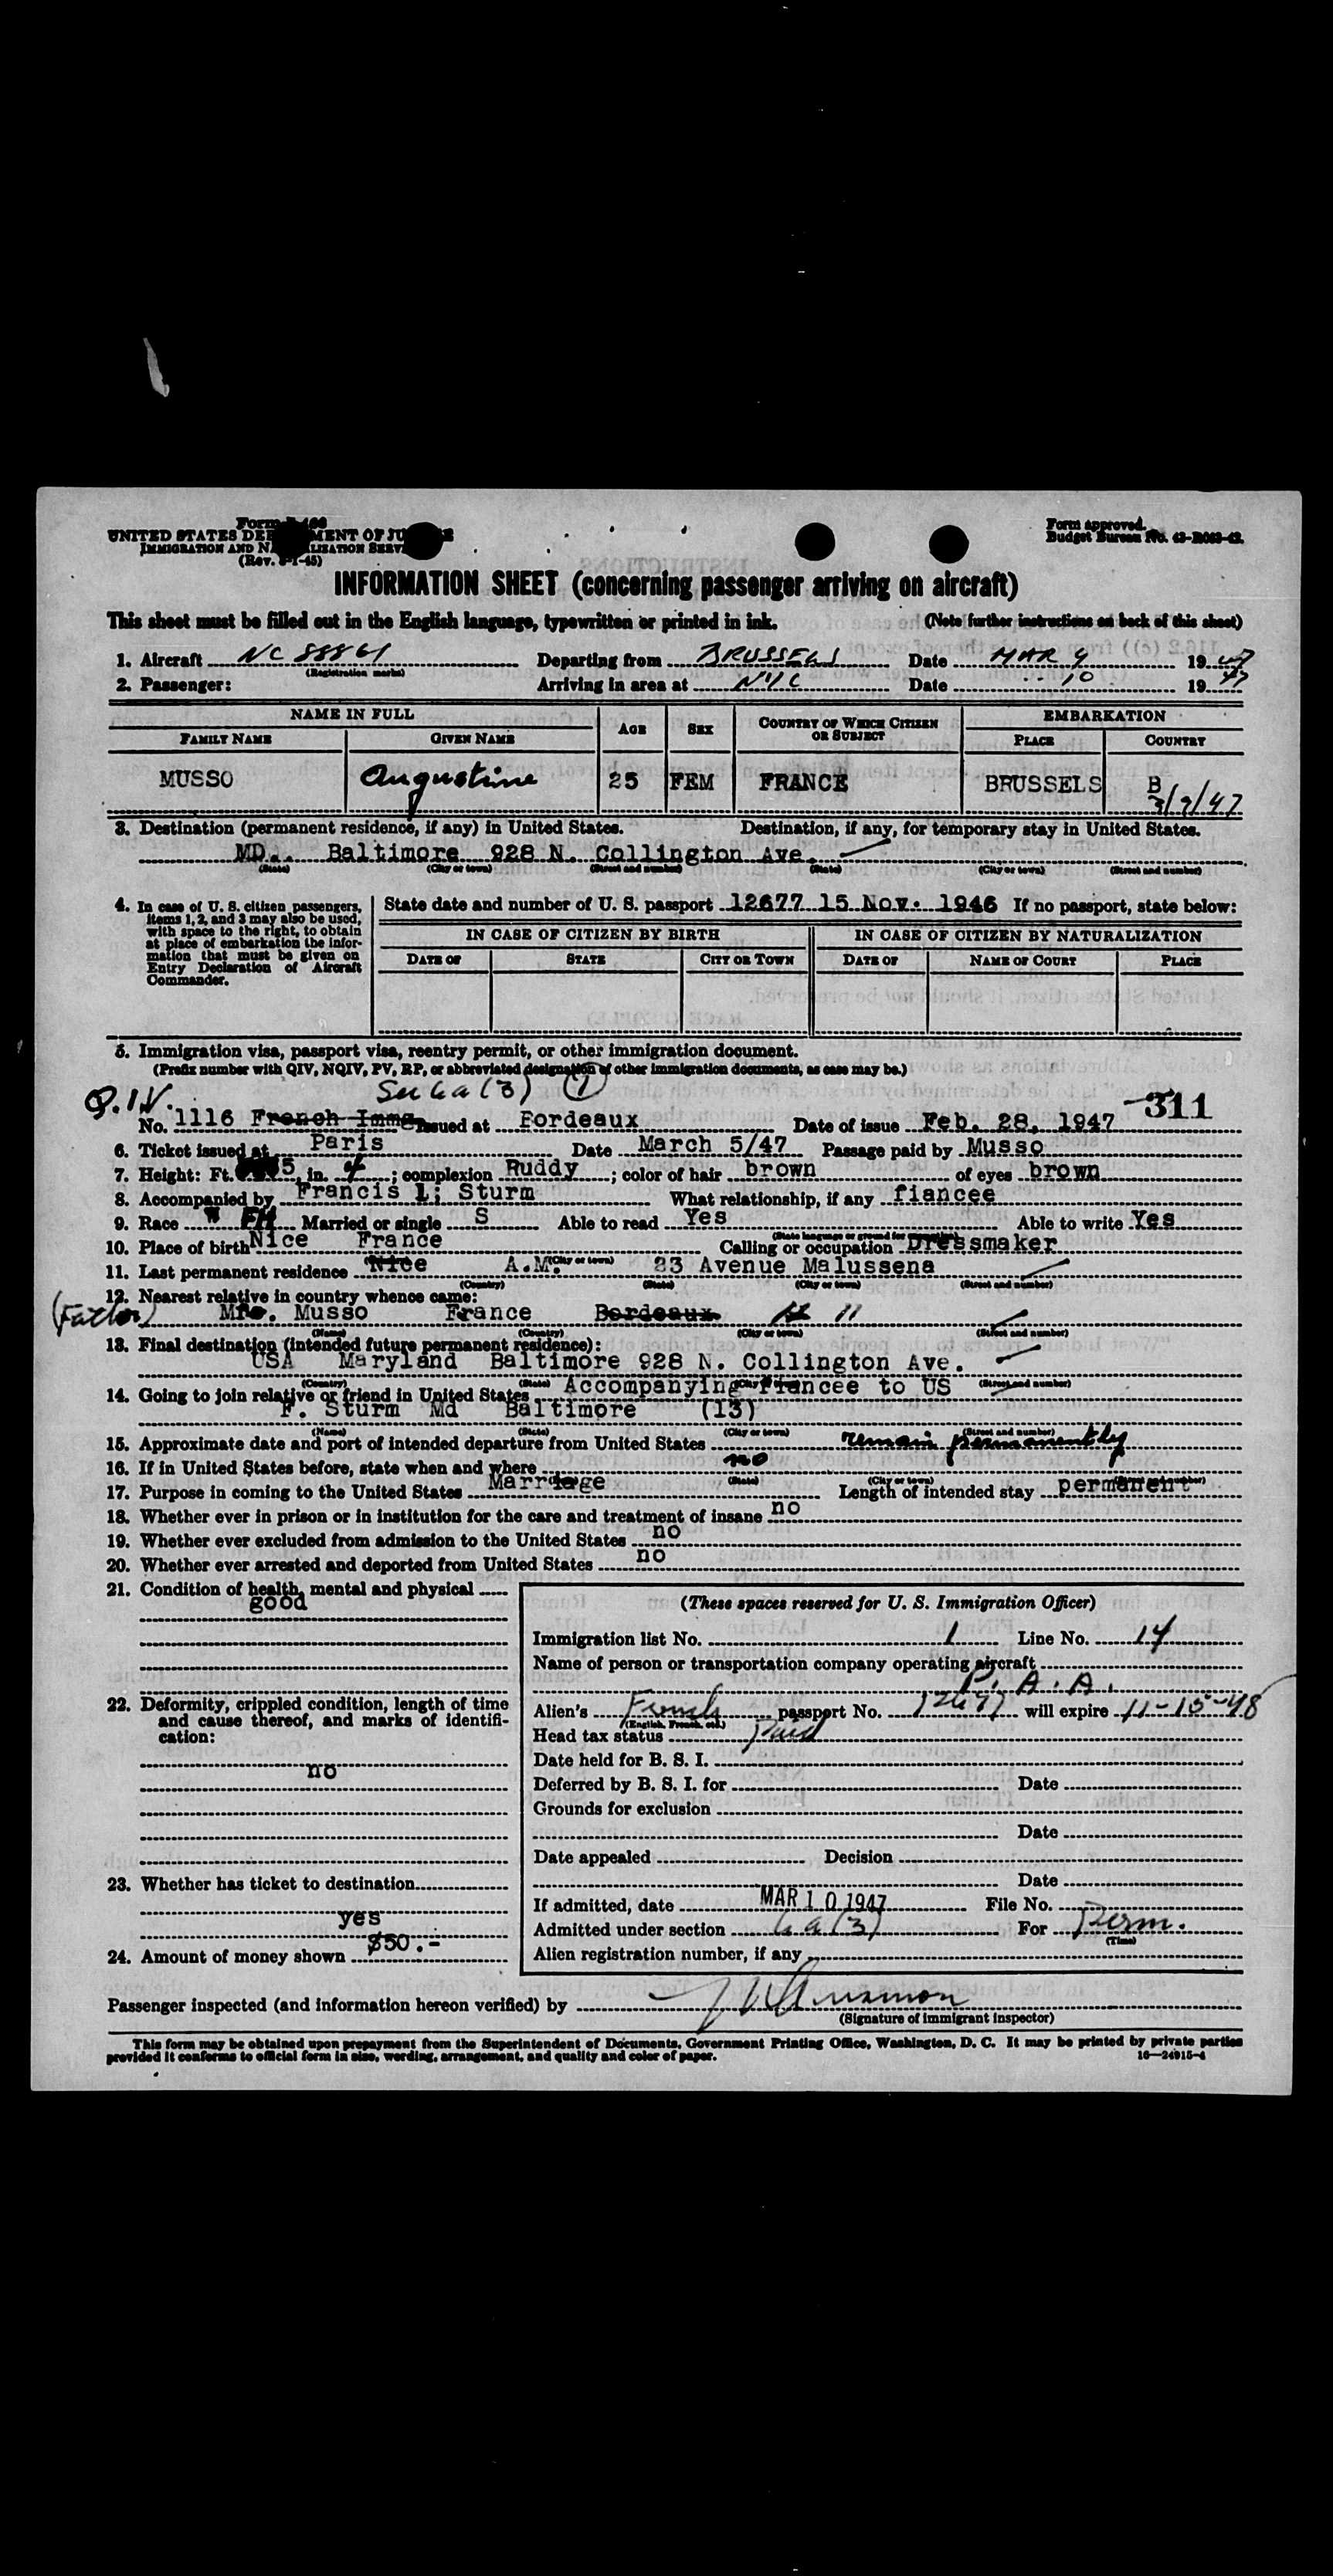 Form I-466
UNITED STATES DEPARTMENT OF JUSTICE
IMMIGRATION AND NATURALIZATION SERVICE
(Rev. 8-1-45)
Form approved.
Budget Bureau No. 43-R083-42.
INFORMATION SHEET (concerning passenger arriving on aircraft)
This sheet must be filled out in the English language, typewritten or printed in ink. (Note further instructions on back of this sheet)
1. Aircraft NC 88861 Departing from BRUSSELS Date MAR 9 1947
(Registration marks)
2. Passenger: Arriving in area at NYC Date 10 1947
NAME IN FULL AGE SEX COUNTRY OF WHICH CITIZEN OR SUBJECT EMBARKATION
FAMILY NAME GIVEN NAME PLACE COUNTRY
MUSSO Augustine 25 FEM FRANCE BRUSSELS B
3/9/47
3. Destination (permanent residence, if any) in United States. Destination, if any, for temporary stay in United States.
MD.. Baltimore 928 N. Collington Ave.
(State) (City or town) (Street and number) (State) (City or town) (Street and number)
4. In case of U. S. citizen passengers, items 1, 2, and 3 may also be used, with space to the right, to obtain at place of embarkation the information that must be given on Entry Declaration of Aircraft Commander.
State date and number of U. S. passport 12677 15 Nov. 1946 If no passport, state below:
IN CASE OF CITIZEN BY BIRTH IN CASE OF CITIZEN BY NATURALIZATION
DATE OF STATE CITY OR TOWN DATE OF NAME OF COURT PLACE
5. Immigration visa, passport visa, reentry permit, or other immigration document.
(Prefix number with QIV, NQIV, PV, RP, or abbreviated designation of other immigration documents, as case may be.)
Sec 6a (3) (1)
Q.I.V.
-311
No. 1116 French Immg Issued at Bordeaux Date of issue Feb. 28, 1947
6. Ticket issued at Paris Date March 5/47 Passage paid by Musso
7. Height: Ft. 5 in. 4; complexion Ruddy; color of hair brown of eyes brown
8. Accompanied by Francis L; Sturm What relationship, if any fiancee
9. Race W FH Married or single S Able to read Yes Able to write Yes
10. Place of birth Nice France Calling or occupation Dressmaker
11. Last permanent residence Nice A.M. 23 Avenue Malussena
(Country) (State) (City or town) (Street and number)
12. Nearest relative in country whence came:
(Father) Mr. Musso France Bordeaux 11
(Name) (Country) (City or town) (Street and number)
13. Final destination (intended future permanent residence):
USA Maryland Baltimore 928 N. Collington Ave.
(Country) (State) (City or town) (Street and number)
14. Going to join relative or friend in United States Accompanying fiancee to US
F. Sturm Md Baltimore (13)
(Name) (State) (City or town) (Street and number)
15. Approximate date and port of intended departure from United States remain permanently
16. If in United States before, state when and where no
(State) (City or town) (Street and number)
17. Purpose in coming to the United States Marriage Length of intended stay permanent
18. Whether ever in prison or in institution for the care and treatment of insane no
19. Whether ever excluded from admission to the United States no
20. Whether ever arrested and deported from United States no
21. Condition of health, mental and physical
good
22. Deformity, crippled condition, length of time and cause thereof, and marks of identification:
no
23. Whether has ticket to destination
yes
24. Amount of money shown $50.-
(These spaces reserved for U. S. Immigration Officer)
Immigration list No. 1 Line No. 14
Name of person or transportation company operating aircraft
P. A. A.
Alien's French passport No. 12677 will expire 11-15-48
(English, French, etc.)
Head tax status Paid
Date held for B. S. I.
Deferred by B. S. I. for Date
Grounds for exclusion
Date
Date appealed Decision
Date
If admitted, date MAR 10 1947 File No.
Admitted under section 6a(3) For Perm.
(Time)
Alien registration number, if any
Passenger inspected (and information hereon verified) by
(Signature of immigrant inspector)
This form may be obtained upon prepayment from the Superintendent of Documents, Government Printing Office, Washington, D. C. It may be printed by private parties
provided it conforms to official form in size, wording, arrangement, and quality and color of paper. 16—24915-4